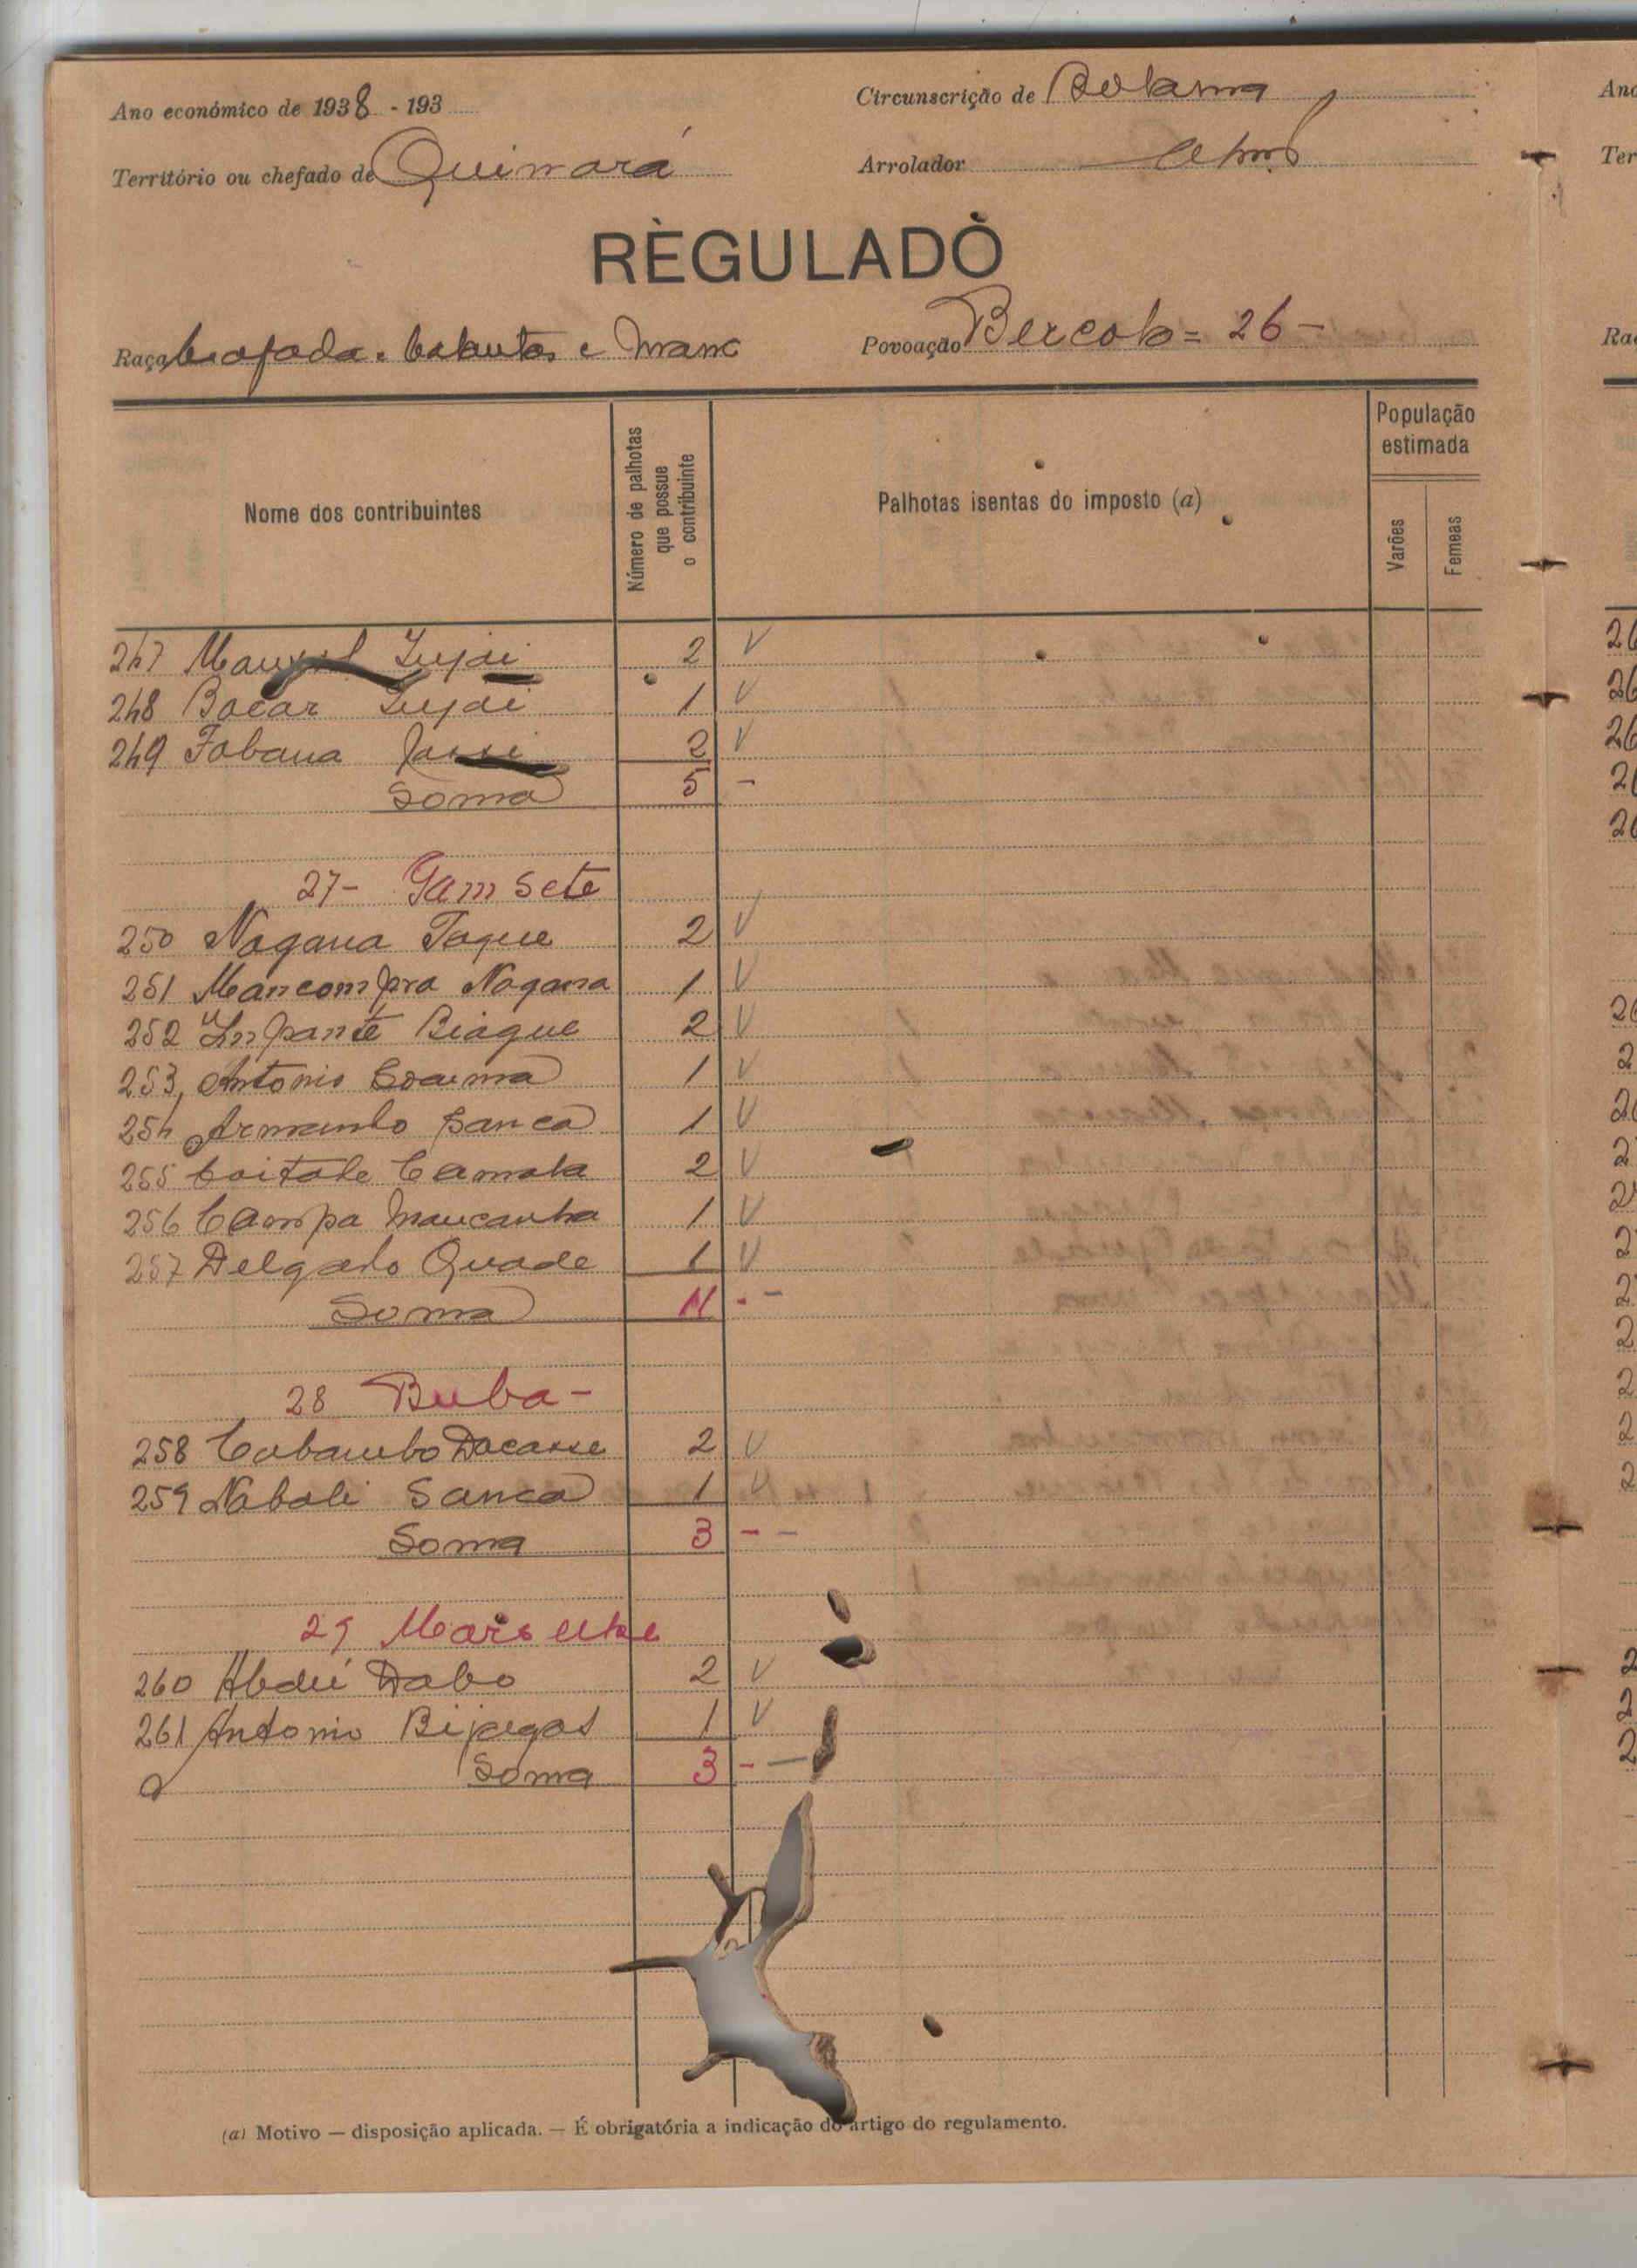 Ano económico de 1938 - 193
Circunscrição de Bolama
Território ou chefado de Quinará
Arrolador
RÈGULADÒ
Raça beafada. balantas e manc
Povoação = 26 -
Nome dos contribuintes
Número de palhotas que possue o contribuinte
Palhotas isentas do imposto (a)
População estimada
Varões
Femeas
247 Injai 2 V
248 Bacar Injai 1 V
249 Fobana 2 V
Soma 5 -
27 - Gam Sete
250 Nagana Toque 2 V
251 Mancompra Nagana 1 V
252 Biague 2 V
253, Antonio 1 V
254 Armando Sanca 1 V
255 Camala 2 V
256 Campa Mancanha 1 V
257 Delgado Quade 1 V
Soma 11 - -
28 Buba -
258 2 V
259 Nabali Sanca 1 V
Soma 3 - -
29
260 Abdú Dabo 2 V
261 Antonio Bijagos 1 V
Soma 3 - -
(a) Motivo — disposição aplicada. — É obrigatória a indicação do artigo do regulamento.